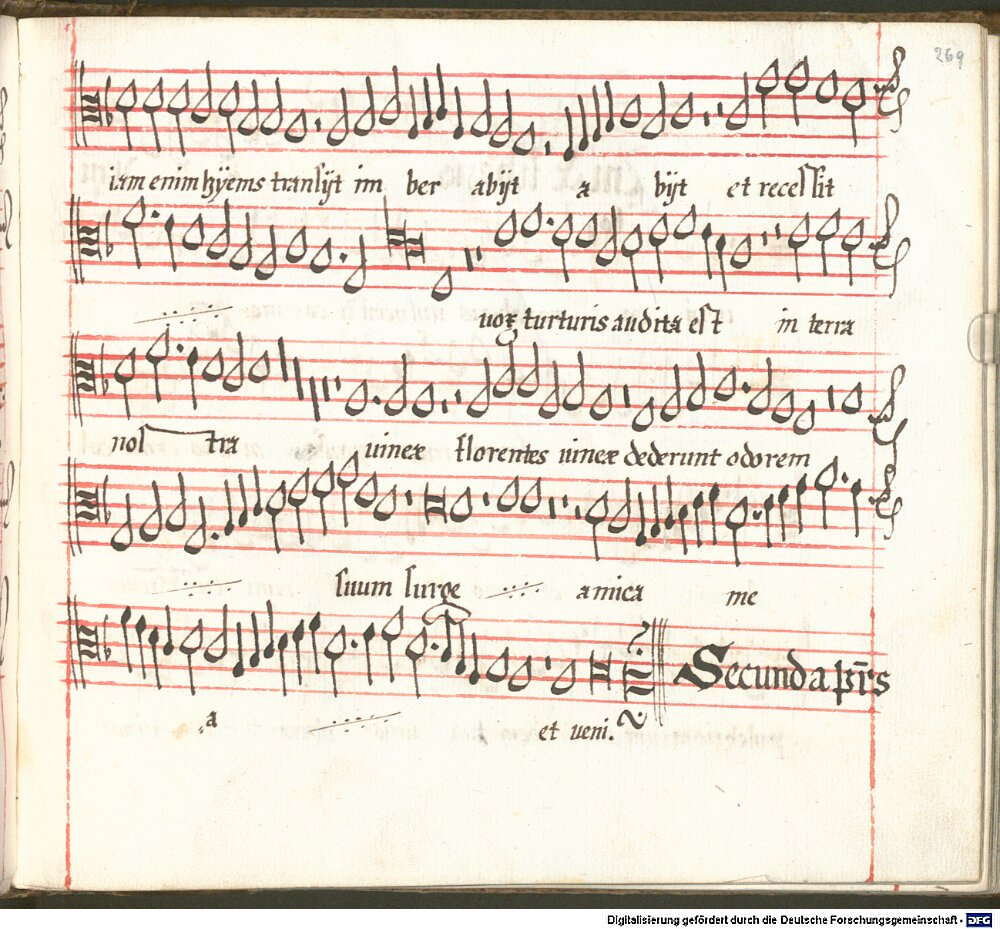 269
iam enim hÿems transÿt im ber abÿt a bÿt et recessit
uox turturis audita est in terra
nos tra uineæ florentes uineæ dederunt odorem
suum surge amica me
a et veni.
Secunda pr̃s
Digitalisierung gefördert durch die Deutsche Forschungsgemeinschaft - DFG